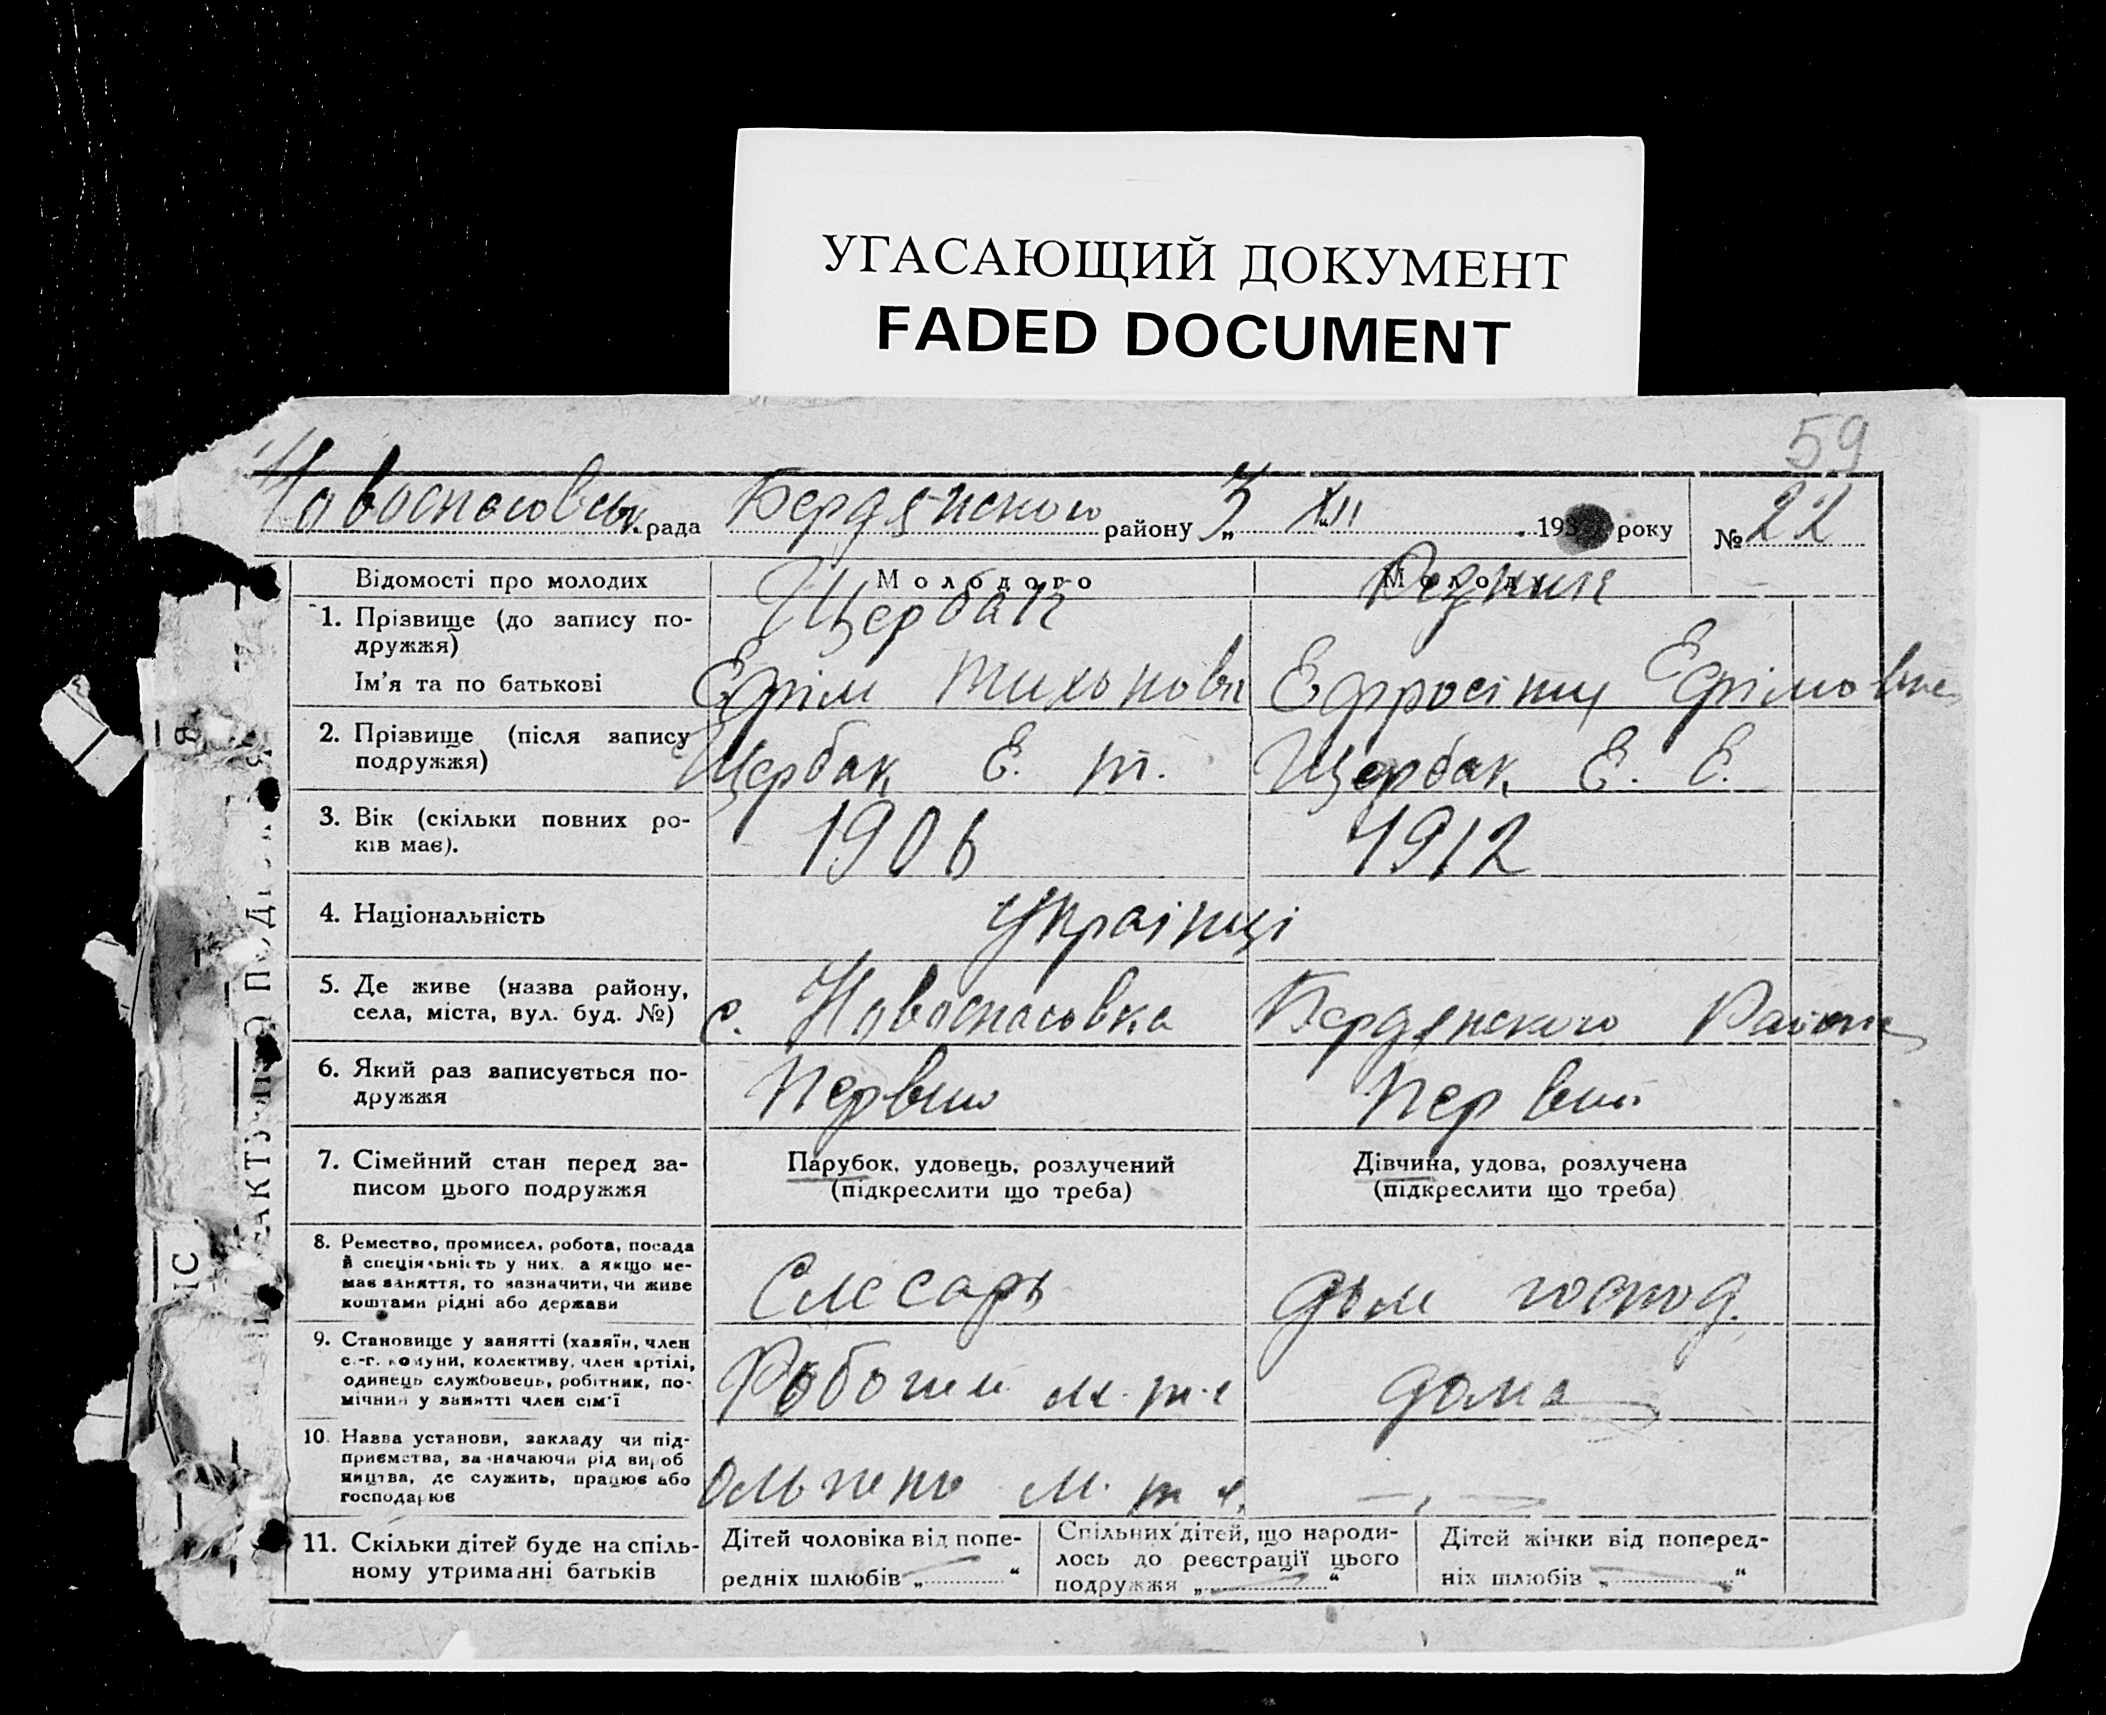 УГАСАЮЩИЙ ДОКУМЕНТ
FADED DOCUMENT
59
Новоспасовськ рада Бердянского району „3 XII 193 року № 22
Відомості про молодих Молодого Молодої
1. Прізвище (до запису по-
дружжя) Щербак Резник
Ім'я та по батькові Ефім Тихонови Ефросіни Ефімовне
2. Прізвище (після запису
подружжя) Щербак Е. Т. Щербак Е. Е.
3. Вік (скільки повних ро-
ків має). 1906 1912
4. Національність Українці
5. Де живе (назва району,
села, міста, вул. буд. №) с. Новоспасовка Бердянского Района
6. Який раз записується по-
дружжя Первий Первий
7. Сімейний стан перед за-
писом цього подружжя
Парубок, удовець, розлучений
(підкреслити що треба)
Дівчина, удова, розлучена
(підкреслити що треба)
8. Ремество, промисел, робота, посада
й спеціяльність у них, а якщо не-
має заняття, то зазначити, чи живе
коштами рідні або держави
Слесарь дом господ.
9. Становище у занятті (хазяїн, член
с.-г. комуни, колективу, член артілі,
одинець службовець, робітник, по-
мічний у занятті член сім'ї
Робочий м.т.с дома
10. Назва установи, закладу чи під-
приємства, зазначаючи рід вироб
ництва, де служить, працює або
господарює
м.т.с.
11. Скільки дітей буде на спіль-
ному утриманні батьків
Дітей чоловіка від попе-
редніх шлюбів „ “
Спільних дітей, що народи-
лось до реєстрації цього
подружжя „ “
Дітей жінки від поперед-
ніх шлюбів „ “